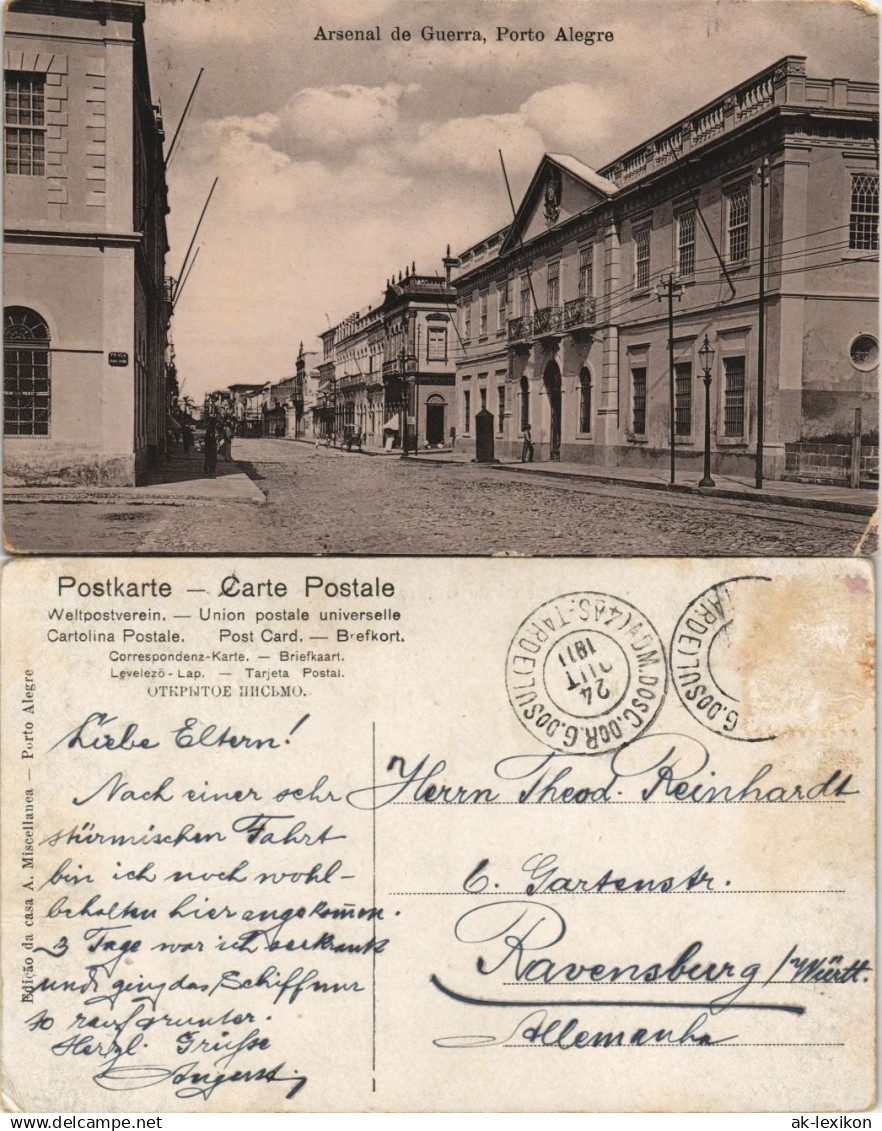 Arsenal de Guerra, Porto Alegre
PRAÇA
Postkarte — Carte Postale
Weltpostverein. — Union postale universelle
Cartolina Postale. Post Card. — Brefkort.
Correspondenz-Karte. — Briefkaart.
Levelezö-Lap. — Tarjeta Postal.
ОТКРЫТОЕ ПИСЬМО.
Edição da casa A. Miscellanea — Porto Alegre
24
OUT
1911
Liebe Eltern!
Nach einer sehr
stürmischen Fahrt
bin ich noch wohl-
behalten hier angekomen.
3 Tage war ich seekrank
und ging das Schiff nur
so rauf grunter.
Herzl. Grüsse
Herrn Theod. Reinhardt
6. Gartenstr.
Ravensburg / Württ.
Allemanha
ak-lexikon
www.delcampe.net